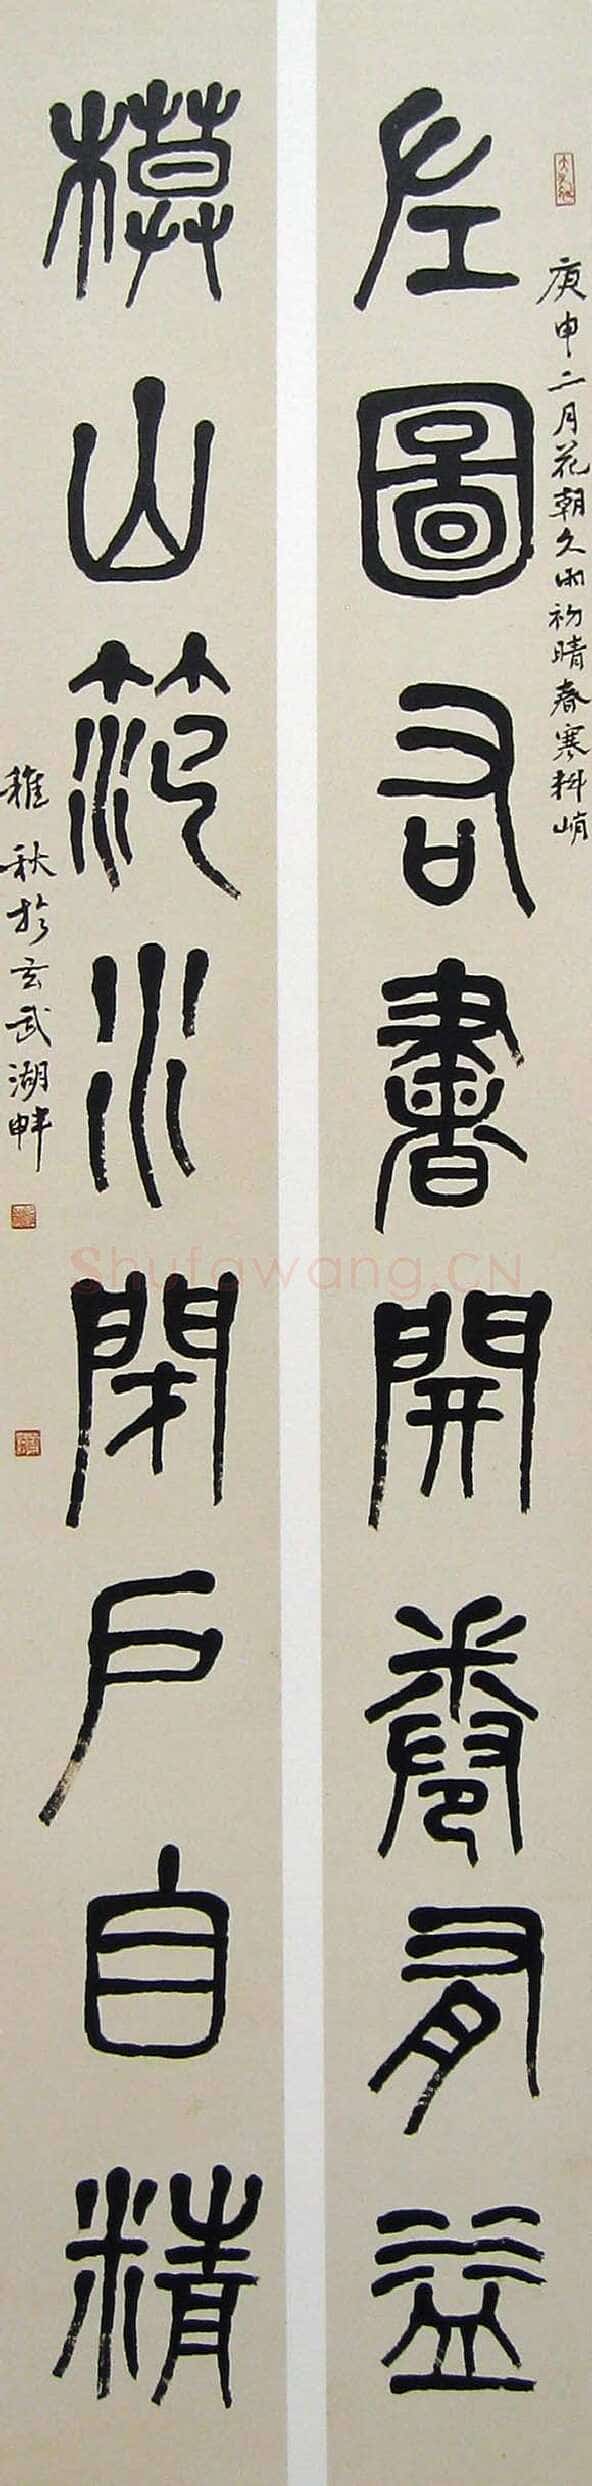 庚申二月花朝久雨初晴春寒料峭
左圖右書開卷有益
模山笵水閉戶自精
稚秋於玄武湖畔
Shufawang.CN